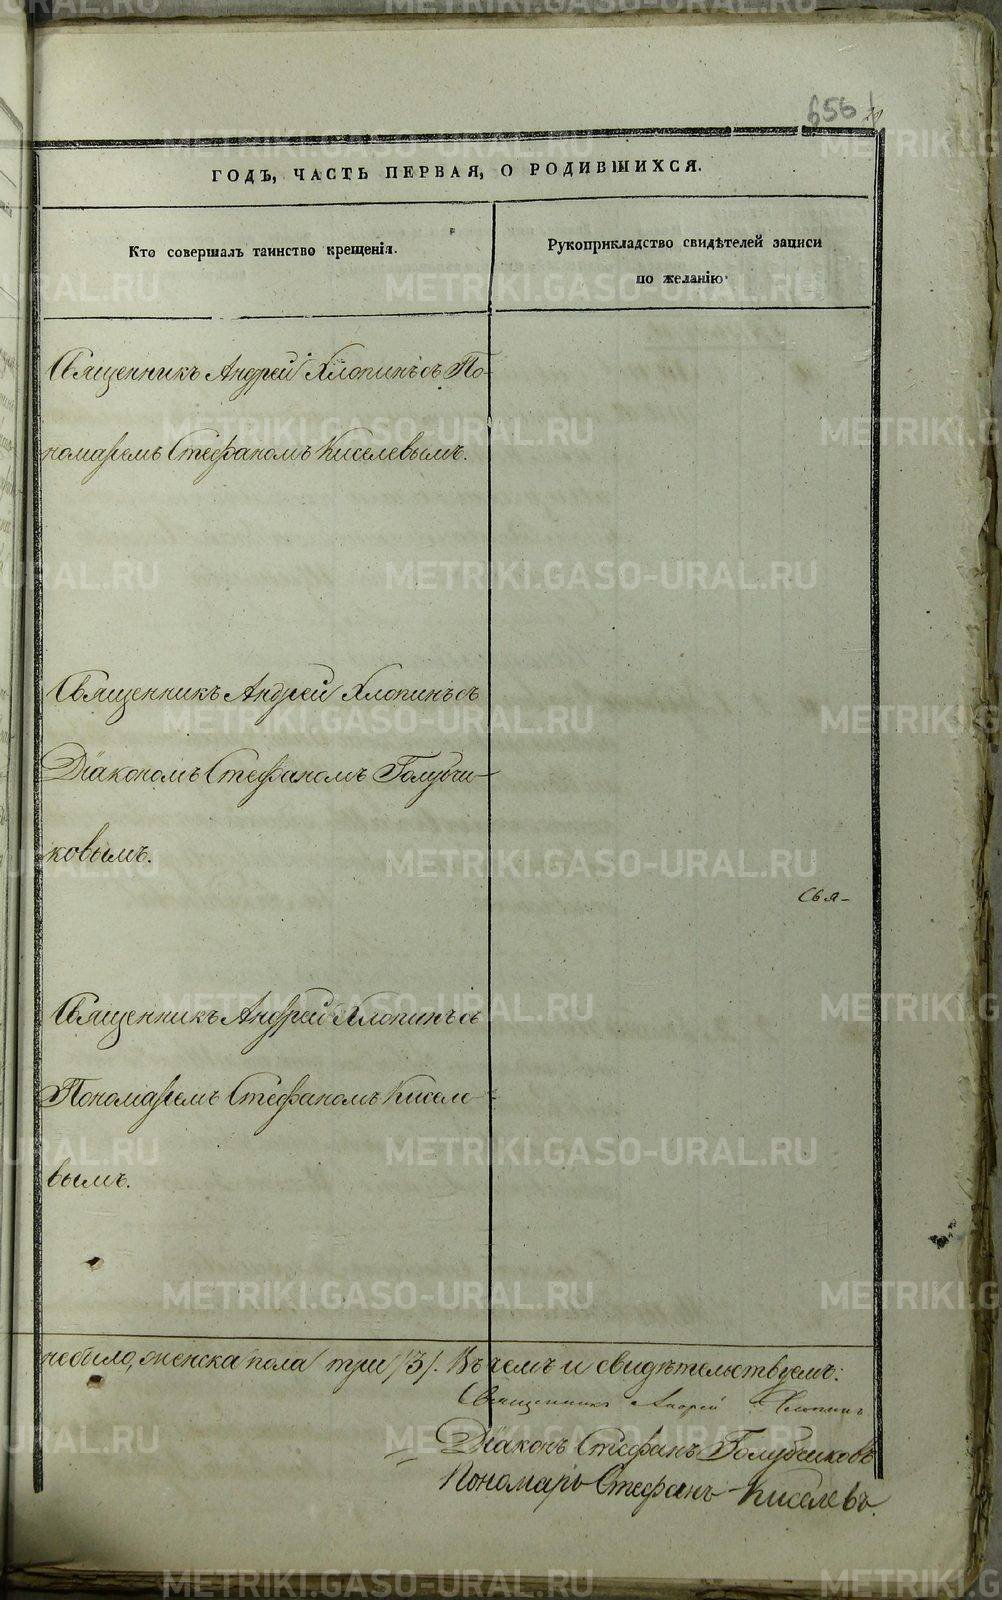 656
ГОДЪ, ЧАСТЬ ПЕРВАЯ, О РОДИВШИХСЯ.
Кто совершалъ таинство крещенія.
Рукоприкладство свидѣтелей записи
по желанію
Священникъ Андрей Хлопинъ съ По-
номаремъ Стефаномъ Киселевымъ.
Священникъ Андрей Хлопинъ съ
Діакономъ Стефаномъ Голубчи-
ковымъ.
Свя-
Священникъ Андрей Хлопинъ съ
Пономаремъ Стефаномъ Кисele-
вымъ.
небыло, женска пола три /3/. Въ чемъ и свидѣтельствуемъ:
Священникъ Андрей Хлопинъ
Діаконъ Стефанъ Голубчиковъ
Пономарь Стефанъ Киселевъ.
METRIKI.GASO-URAL.RU